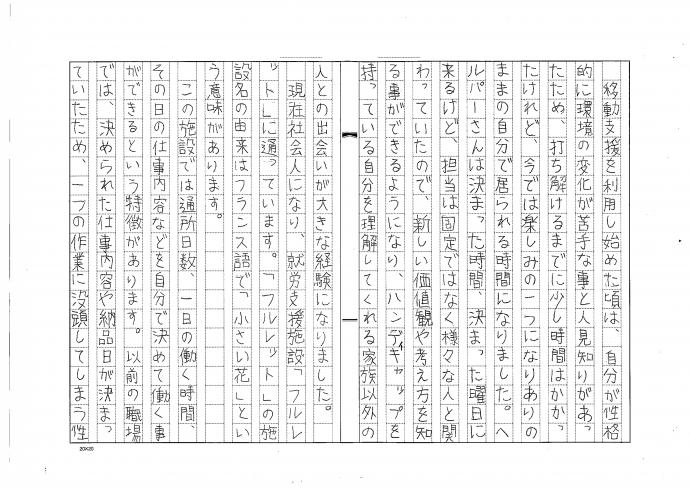 移動支援を利用し始めた頃は、自分が性格
的に環境の変化が苦手な事と人見知りがあっ
たため、打ち解けるまでに少し時間はかかっ
たけれど、今では楽しみの一つになりありの
ままの自分で居られる時間になりました。ヘ
ルパーさんは決まった時間、決まった曜日に
来るけど、担当は固定ではなく様々な人と関
わっていたので、新しい価値観や考え方を知
る事ができるようになり、ハンディキャップを
持っている自分を理解してくれる家族以外の
人との出会いが大きな経験になりました。
　現在社会人になり、就労支援施設「フルレ
ット」に通っています。「フルレット」の施
設名の由来はフランス語で「小さい花」とい
う意味があります。
　この施設では通所日数、一日の働く時間、
その日の仕事内容などを自分で決めて働く事
ができるという特徴があります。以前の職場
では、決められた仕事内容や納品日が決まっ
ていたため、一つの作業に没頭してしまう性
20×20